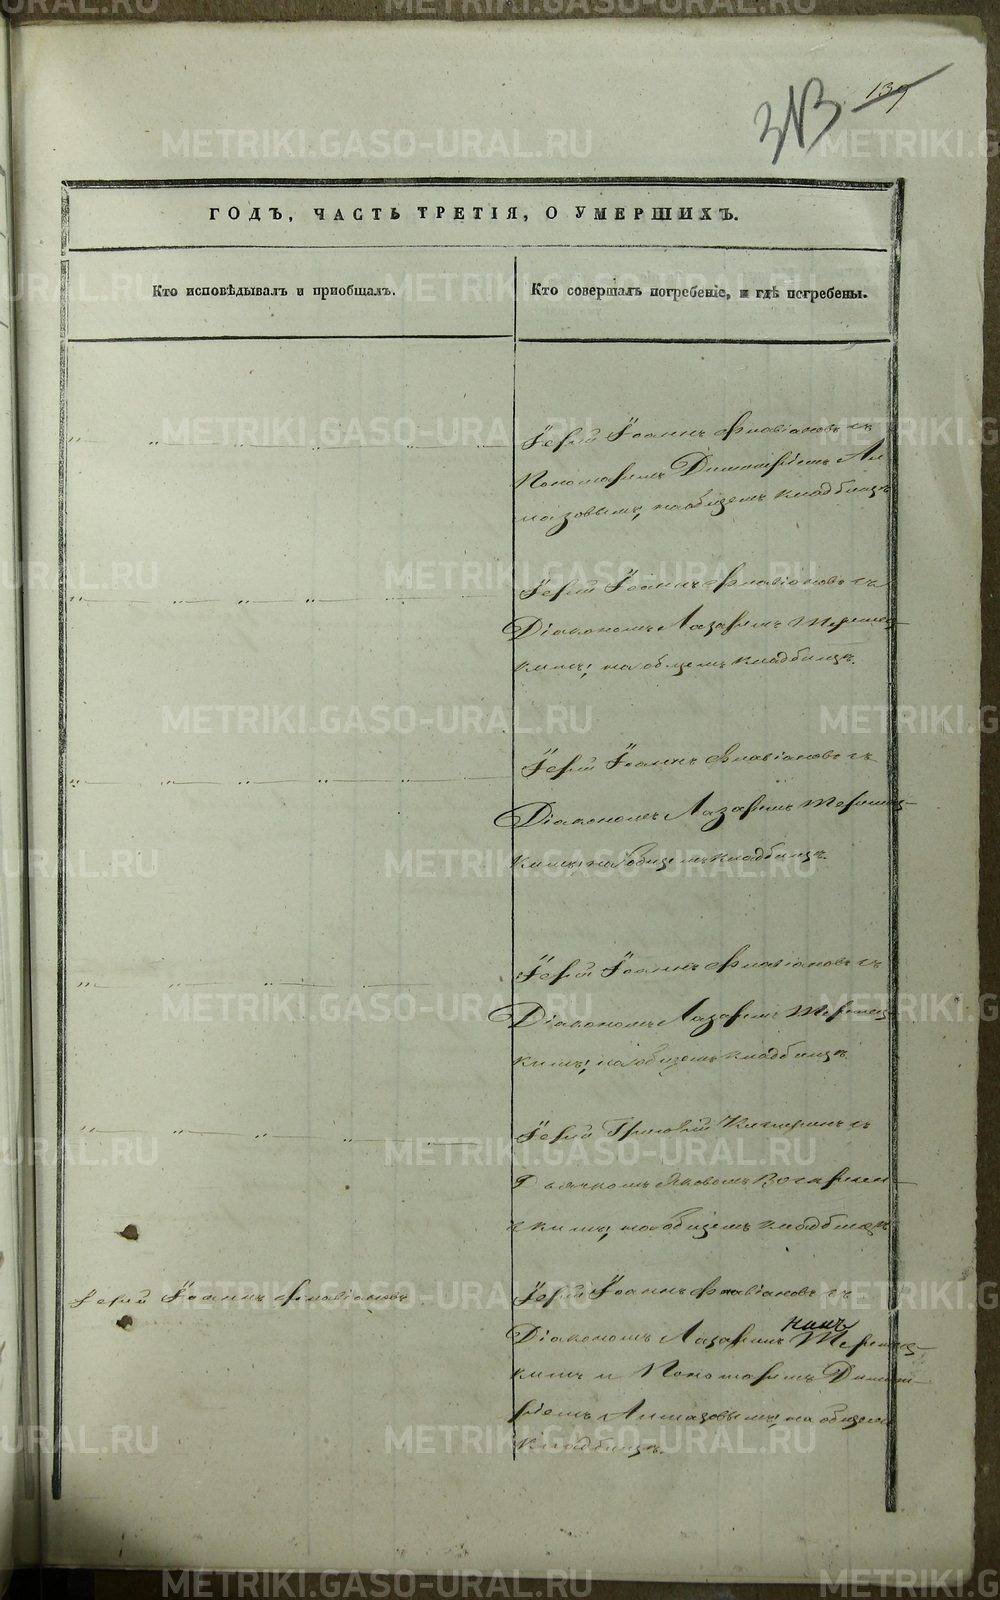 139
313
ГОДЪ, ЧАСТЬ ТРЕТІЯ, О УМЕРШИХЪ.
Кто исповѣдывалъ и пріобщалъ.
Кто совершалъ погребеніе, и гдѣ погребены.
Іерей Іоаннъ Флавіановъ съ
Пономаремъ Димитріемъ Ал
мазовымъ, на общемъ кладбищѣ
Іерей Іоаннъ Флавіановъ съ
Діакономъ Лазаремъ
кимъ, на общемъ кладбищѣ.
Іерей Іоаннъ Флавіановъ съ
Діакономъ Лазаремъ
кимъ, на общемъ кладбищѣ.
Іерей Іоаннъ Флавіановъ съ
Діакономъ Лазаремъ
кимъ, на общемъ кладбищѣ
Іерей съ
Дьячкомъ Яковомъ
скимъ, на общемъ кладбищѣ
Іерей Іоаннъ Флавіановъ
Іерей Іоаннъ Флавіановъ съ
Діакономъ Лазаремъ
кимъ и Пономаремъ Димит-
ріемъ Алмазовымъ, на общемъ
кладбищѣ.
METRIKI.GASO-URAL.RU